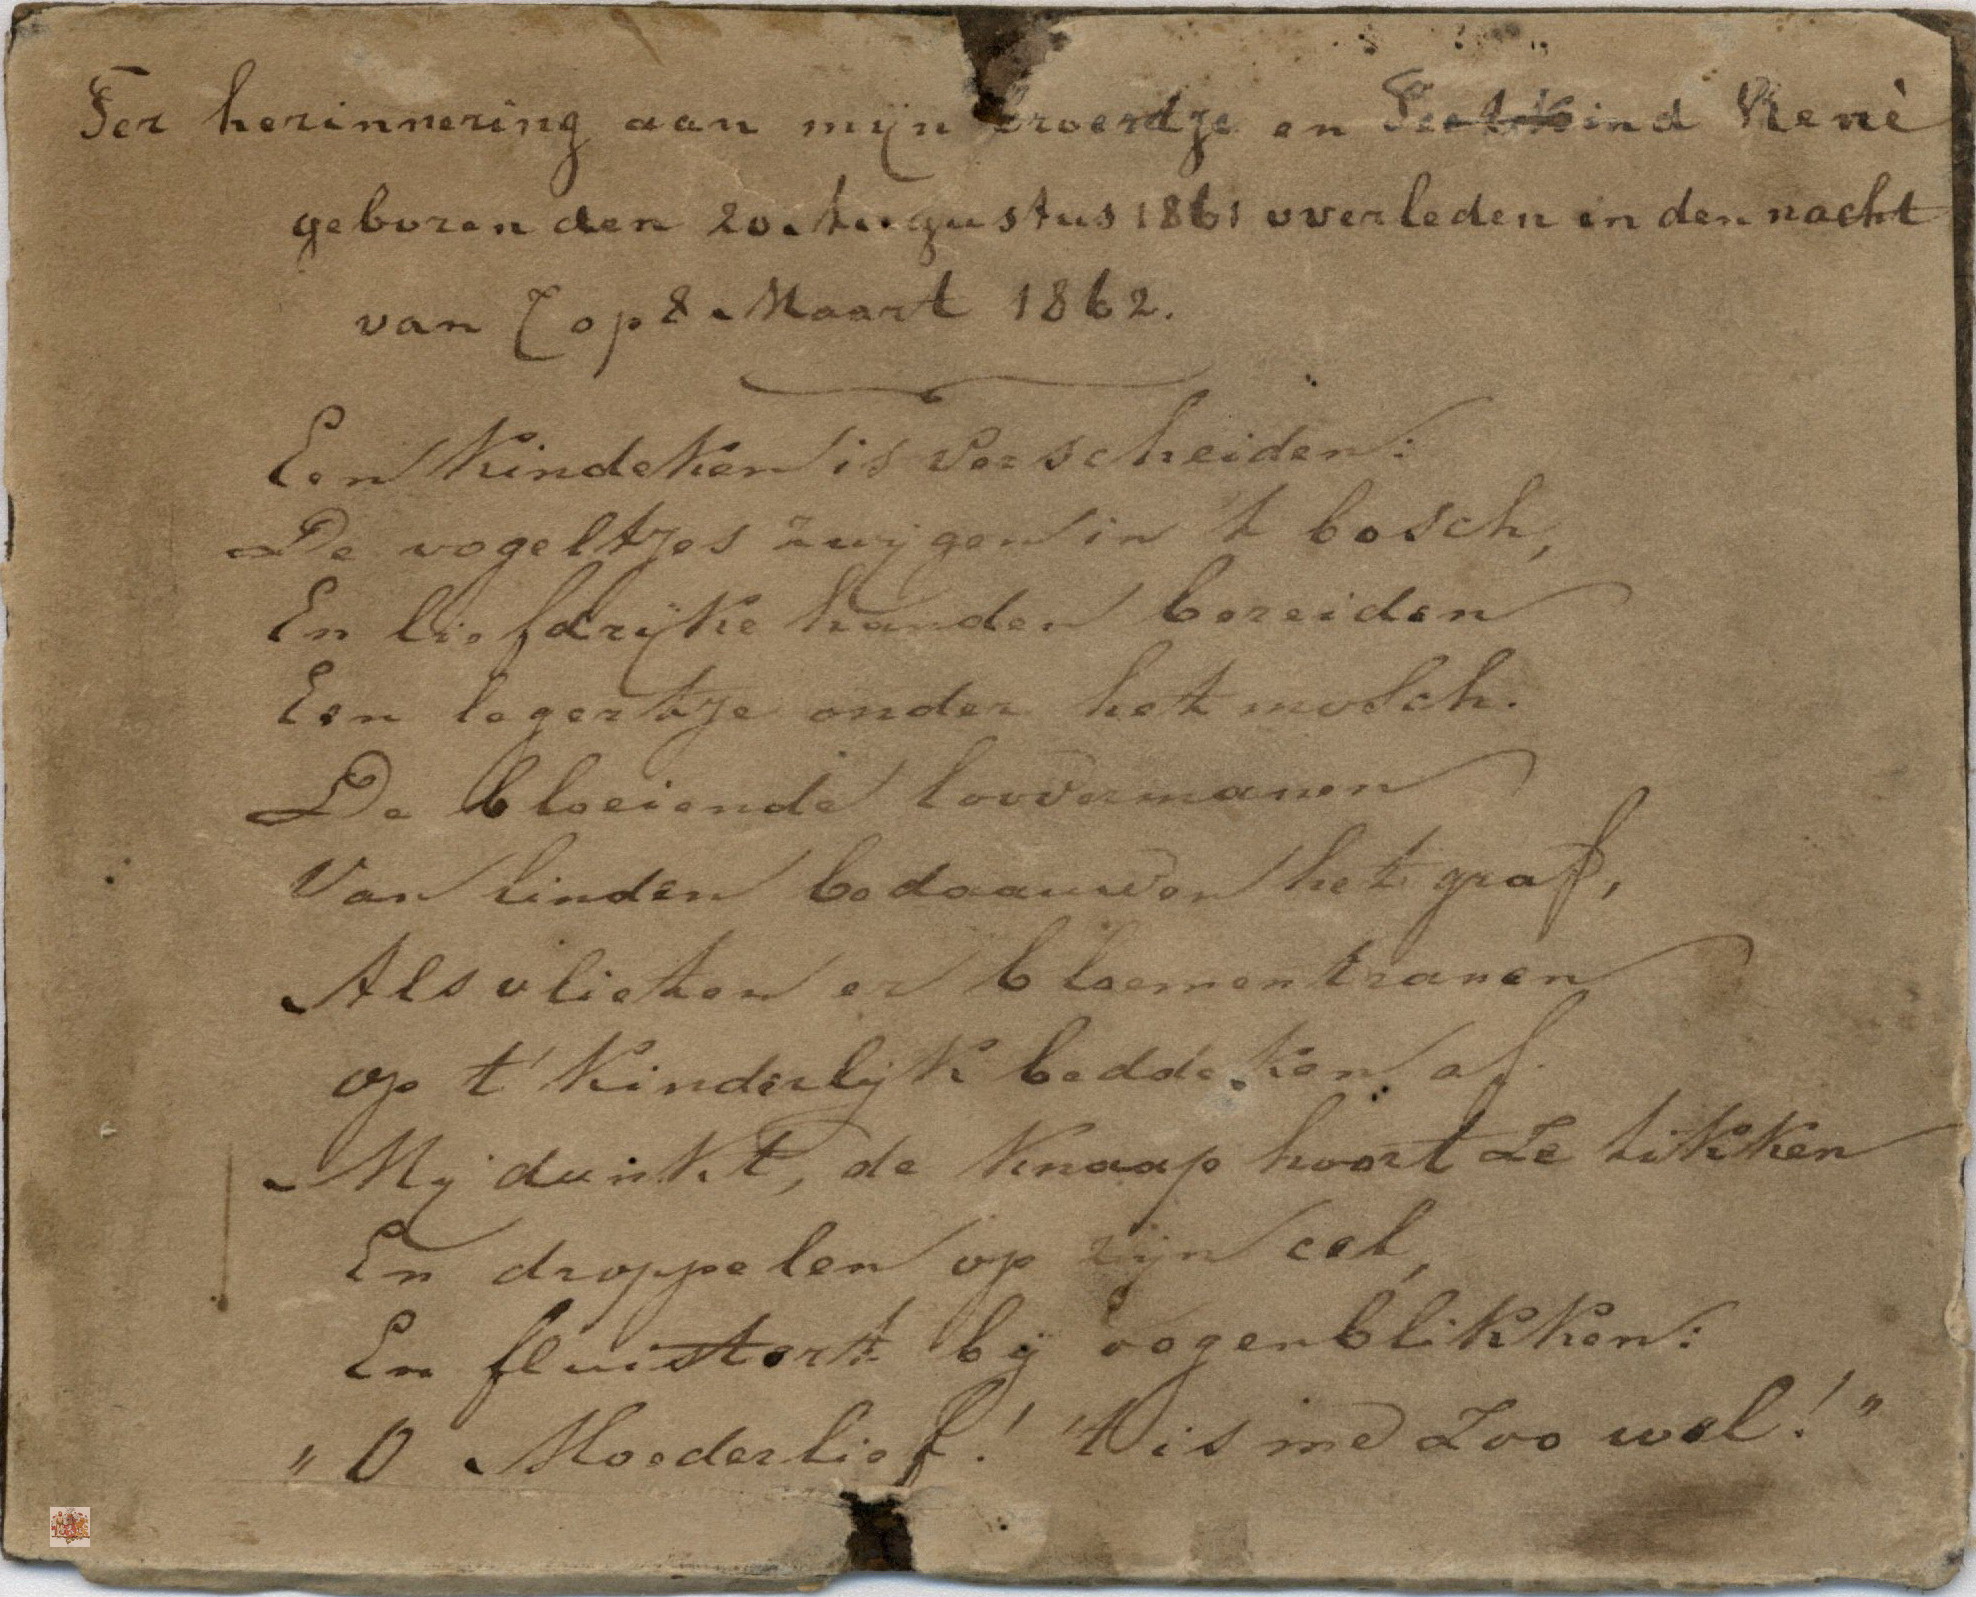 Ter herinnering aan mijn broertje en Petekind Renè
geboren den 20 Augustus 1861 overleden in den nacht
van 7 op 8 Maart 1862.
Een kindeken is verscheiden:
De vogeltjes zwijgen in 't bosch,
En liefdrijke handen bereiden
Een legertje onder het mosch.
De bloeiende loovermanen
Van linden bedaauwen het graf,
Als vlieten er bloementranen
op t' kinderlijk beddeken af.
Mij dunkt, de knaap hoort ze tikken
En droppelen op zijn cel,
En fluistert bij oogenblikken:
"O Moederlief! 't is me zoo wel!"